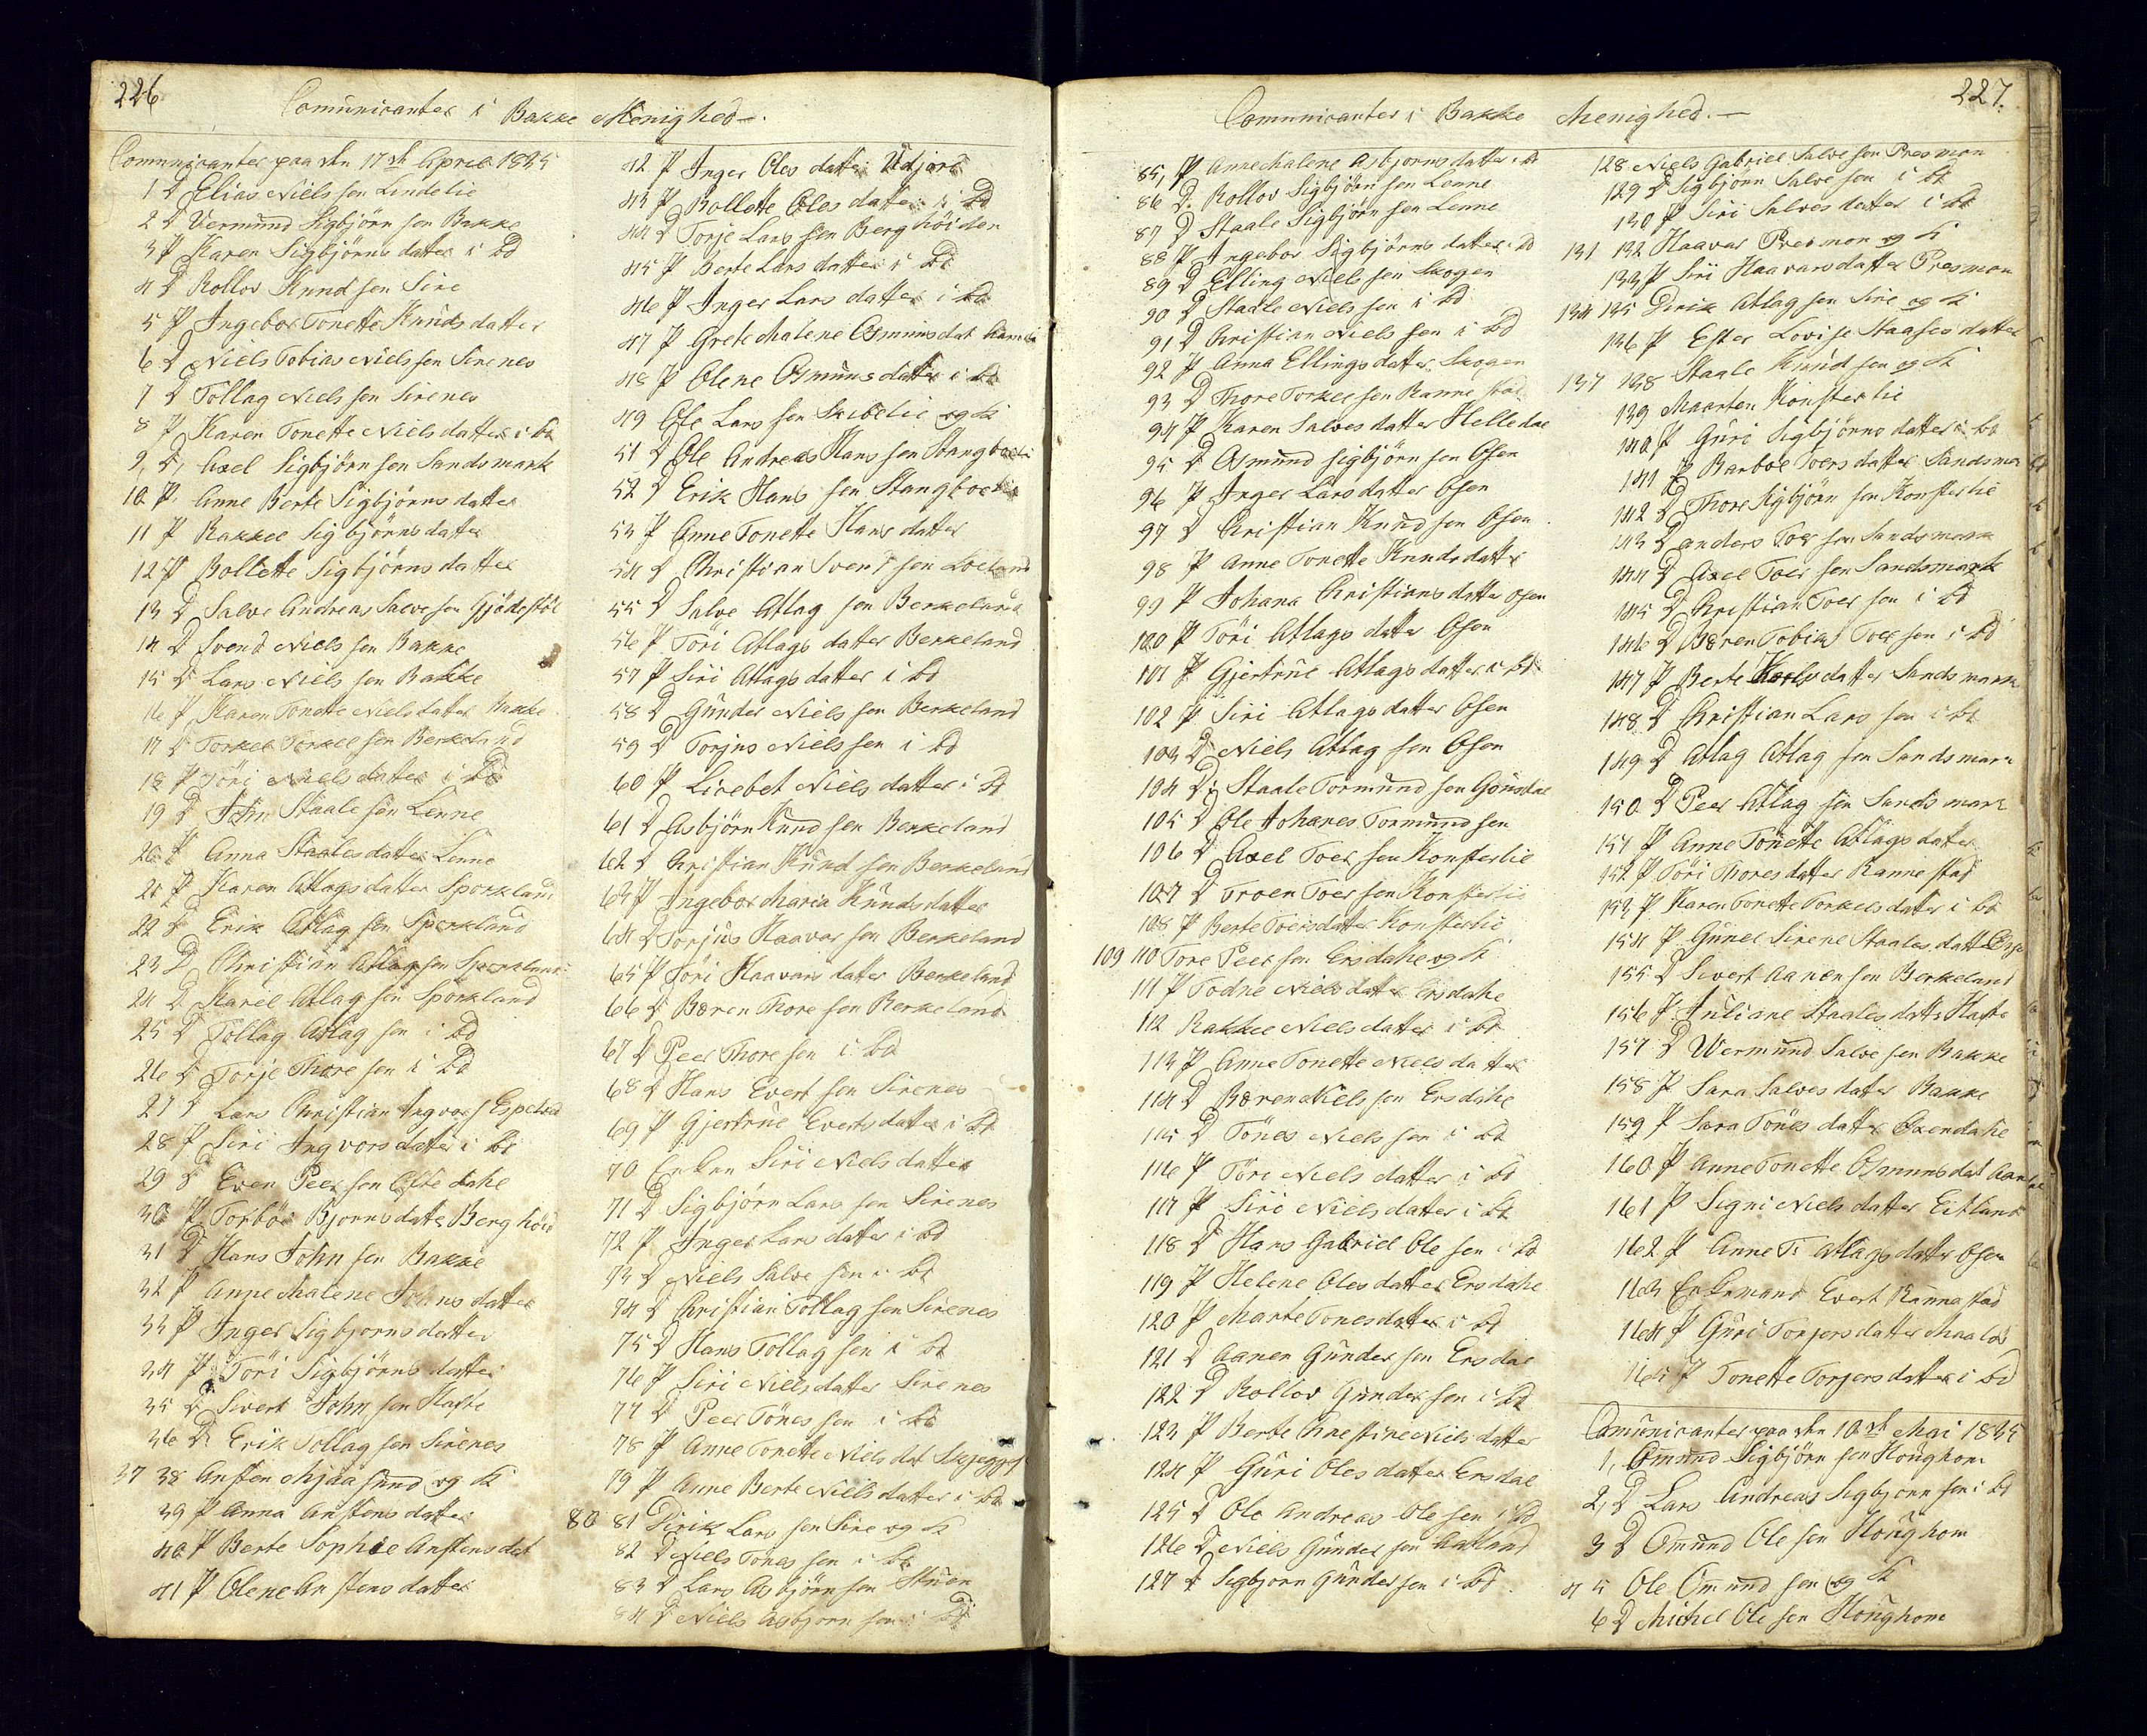 226
Comunicanter i Bakke Menighed.
Comunicanter paa den 17de April 1835
1 D Elias Niels sen Lindelie
2 D Vermund Sigbjörn sen Bakke
3 P Karen Sigbjörns datter i bd
4 D Rollov Knud sen Sire
5 P Ingebor Tonette Knuds datter
6 D Niels Tobias Niels sen Sirenes
7 D Tollag Niels sen Sirenes
8 P Karen Tonette Niels datter i bd
9, D, Axel Sigbjörn sen Sandsmark
10 P. Anne Berte Sigbjörns datter
11 P Rakkel Sigbjörns datter
12 P Bollette Sigbjörns datter
13 D Salve Andreas Salve sen Gjödestöl
14 D Svend Niels sen Bakke
15 D Lars Niels sen Bakke
16 P Karen Tonette Niels datter Bakke
17 D Torkel Torkel sen Berkeland
18 P Töri Niels datter i bd
19 D John Staale sen Lenne
20 P Anna Staales datter Lenne
21 P Karen Atlags datter Sporkland
22 D Erik Atlag sen Sporkland
23 D Christian Atlag sen Sporkland
24 D Karel Atlag sen Sporkland
25 D Tollag Atlag sen i bd
26 D Torje Thore sen i bd
27 D Lars Christian Ingvor s Espetvæd
28 P Siri Ingvors datter i bd
29 D Even Peer sen Öfte dahe
30 P Torbör Bjorns datter Berghöid
31 D Hans John sen Bakke
32 P Anne Malene Johns datter
33 P Inger Sigbjorns datter
34 P Töri Sigbjörns datter
35 D Sivert John sen Hafte
36 D Erik Tollag sen Sirenes
37 38 Ansten Mjaasund og K
39 P Anna Anstens datter
40 P Berte Sophie Anstens dat
41 P Olene Anstens datter
42 P Inger Oles datter Udjord
43 P Bollette Oles datter i bd
44 D Torje Lars sen Berghöiden
45 P Berte Lars datter i bd
46 P Inger Lars datter i bd
47 P Grete Malene Osmuns dat
48 P Olene Osmuns datter i bd
49 Ole Lars sen Skibelie og K
51 D Ole Andreas Hans sen Stangborli
52 D Erik Hans sen Stangborli
53 P Anne Tonette Hans datter
54 D Christian Svend sen Loeland
55 D Salve Atlag sen Berkeland
56 P Töri Atlags datter Berkeland
57 P Siri Atlags datter i bd
58 D Gunder Niels sen Berkeland
59 D Torjus Niels sen i bd
60 P Lisebet Niels datter i bd
61 D Asbjörn Knud sen Berkeland
62 D Christian Knud sen Berkeland
63 P Ingebor Maria Knuds datter
64 D Torjus Haavar sen Berkeland
65 P Töri Haavars datter Berkeland
66 D Bæren Thore sen Berkeland
67 D Peer Thore sen i bd
68 D Hans Evert sen Sirenes
69 P Gjertrue Everts datter i bd
70 Enken Siri Niels datter
71 D Sigbjörn Lars sen Sirenes
72 P Inger Lars datter i bd
73 D Niels Salve sen i bd
74 D Christian Tollag sen Sirenes
75 D Hans Tollag sen i bd
76 P Siri Niels datter Sirenes
77 D Peer Tönes sen i bd
78 P Anne Tonette Niels dat Skjeggest
79 P Anne Berte Niels datter i bd
80 81 Dirik Lars sen Sire og K
82 D Niels Tones sen i bd
83 D Lars Asbjörn sen Stuen
84 D Niels Asbjorn sen i bd
227.
Comunicanter i Bakke Menighed.
85, P Anne Malene Asbjorns datter i bd
86 D. Rollov Sigbjörn sen Lenne
87 D Staale Sigbjörn sen Lenne
88 P Ingebor Sigbjörns datter i bd
89 D Elling Niels sen Skogen
90 D Staale Niels sen i bd
91 D Kristian Niels sen i bd
92 P Anna Ellings datter Skogen
93 D Thore Torkel sen Rannestad
94 P Karen Salves datter Helledal
95 D Osmund Sigbjörn sen Osen
96 P Inger Lars datter Osen
97 D Christian Knud sen Osen
98 P Anne Tonette Knuds datter
99 P Johana Christians datter Osen
100 P Töri Atlags datter Osen
101 P Gjertrue Atlags datter i bd
102 P Siri Atlags datter Osen
103 D Niels Atlag sen Osen
104 D Staale Tormund sen Gousdal
105 D Ole Johanes Tormund sen
106 D Axel Toer sen Konsterlie
107 D Troen Toer sen Konsterlie
108 P Berte Toers datter Konsterlie
109 110 Tore Peer sen Ersdahe og K
111 P Todne Niels datter Ersdahe
112 Rakkel Niels datter i bd
113 P Anne Tonette Niels datter
114 D Bæren Niels sen Ersdahe
115 D Tönes Niels sen i bd
116 P Töri Niels datter i bd
117 P Siri Niels datter i bd
118 D Hans Gabriel Ole sen i bd
119 P Helene Oles datter Ersdahe
120 P Marte Tones datter i bd
121 D Aanen Gunder sen Ersdal
122 D Rollov Gunder sen i bd
123 P Berte Christine Niels datter
124 P Guri Oles datter Ersdal
125 D Ole Andreas Ole sen i bd
126 D Niels Gunder sen Aatland
127 D Sigbjorn Gunder sen i bd
128 Niels Gabriel Salve sen Presmon
129 D Sigbjörn Salve sen i bd
130 P Siri Salves datter i bd
131 132 Haavar Presmon og K
133 P Siri Haavars datter Presmon
134 135 Dirik Atlag sen Sire og K
136 P Ester Lovise Staales datter
137 138 Staale Knud sen og K
139 Maarten Konsterlie
140 P Guri Sigbjörns datter i bd
141 P Barboe Toers datter Sandsmar
142 D Thore Sigbjörn sen Konsterlie
143 D Anders Toer sen Sandsmark
144 D Axel Toer sen Sandsmark
145 D Christian Toer sen i bd
146 D Bæren Tobias Toer sen i bd
147 P Berte Karls datter Sandsmark
148 D Christian Lars sen i bd
149 D Atlag Atlag sen Sandsmark
150 D Peer Atlag sen Sandsmark
151 P Anne Tönette Atlags datter
152 P Töri Thores datter Rannestad
153 P Karen Tonette Torkels datter i bd
154 P Gunel Sirene Staales datter
155 D Sivert Aanen sen Berkeland
156 P Juliane Staales datter Hafte
157 D Wermund Salve sen Bakke
158 P Sara Salves datter Bakke
159 P Sara Tönes datter Oxendahe
160 P Anne Tonette Osmuns dat
161 P Signi Niels datter Eitland
162 P Anne T: Atlags datter Osen
163 Enkemand Evert Rannestad
164 P Guri Torjers datter
165 P Tonette Torjers datter i bd
Comunicanter paa den 10de Mai 1835
1, Omund Sigbjörn sen Houghom
2, D Lars Andreas Sigbjorn sen i bd
3 D Omund Ole sen Houghom
4 5 Ole Omund sen og K
6 D Michel Ole sen Houghom